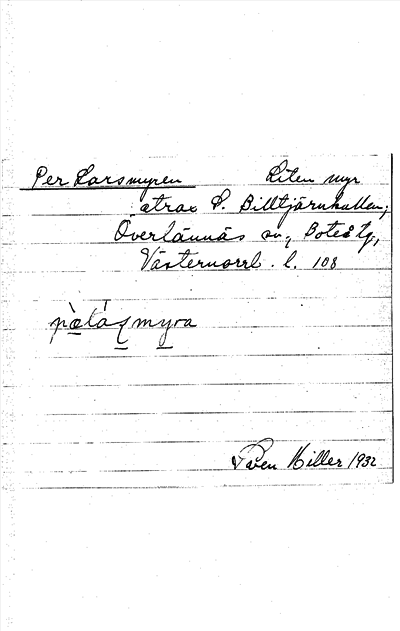 Per Larsmyren Liten myr
strax S. Billtjärnkullen,
Överlännäs sn, Boteå tg,
Västernorrl. l. 108
Sven Hiller 1932